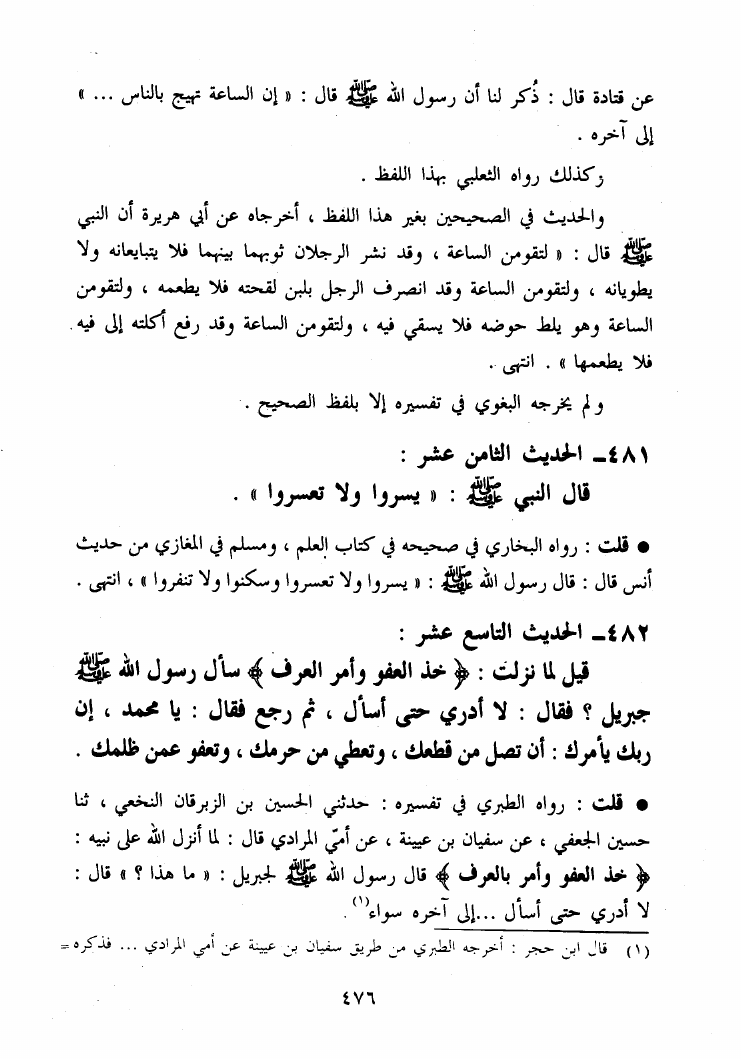 عن قتادة قال : ذُكر لنا أن رسول الله ﷺ قال : « إن الساعة تهيج بالناس ... »
إلى آخره .
وكذلك رواه الثعلبي بهذا اللفظ .
والحديث في الصحيحين بغير هذا اللفظ ، أخرجاه عن أبي هريرة أن النبي
ﷺ قال : « لتقومن الساعة ، وقد نشر الرجلان ثوبهما بينهما فلا يتبايعانه ولا
يطويانه ، ولتقومن الساعة وقد انصرف الرجل بلبن لقحته فلا يطعمه ، ولتقومن
الساعة وهو يلط حوضه فلا يسقي فيه ، ولتقومن الساعة وقد رفع أكلته إلى فيه
فلا يطعمها » . انتهى .
ولم يخرجه البغوي في تفسيره إلا بلفظ الصحيح .
٤٨١ـ الحديث الثامن عشر :
قال النبي ﷺ : « يسروا ولا تعسروا » .
● قلت : رواه البخاري في صحيحه في كتاب العلم ، ومسلم في المغازي من حديث
أنس قال : قال رسول الله ﷺ : « يسروا ولا تعسروا وسكنوا ولا تنفروا » ، انتهى .
٤٨٢ـ الحديث التاسع عشر :
قيل لما نزلت : ﴿ خذ العفو وأمر العرف ﴾ سأل رسول الله ﷺ
جبريل ؟ فقال : لا أدري حتى أسأل ، ثم رجع فقال : يا محمد ، إن
ربك يأمرك : أن تصل من قطعك ، وتعطي من حرمك ، وتعفو عمن ظلمك .
● قلت : رواه الطبري في تفسيره : حدثني الحسين بن الزبرقان النخعي ، ثنا
حسين الجعفي ، عن سفيان بن عيينة ، عن أميّ المرادي قال : لما أنزل الله على نبيه :
﴿ خذ العفو وأمر بالعرف ﴾ قال رسول الله ﷺ لجبريل : « ما هذا ؟ » قال :
لا أدري حتى أسأل ...إلى آخره سواء(١) .
(١) قال ابن حجر : أخرجه الطبري من طريق سفيان بن عيينة عن أمي المرادي ... فذكره =
٤٧٦